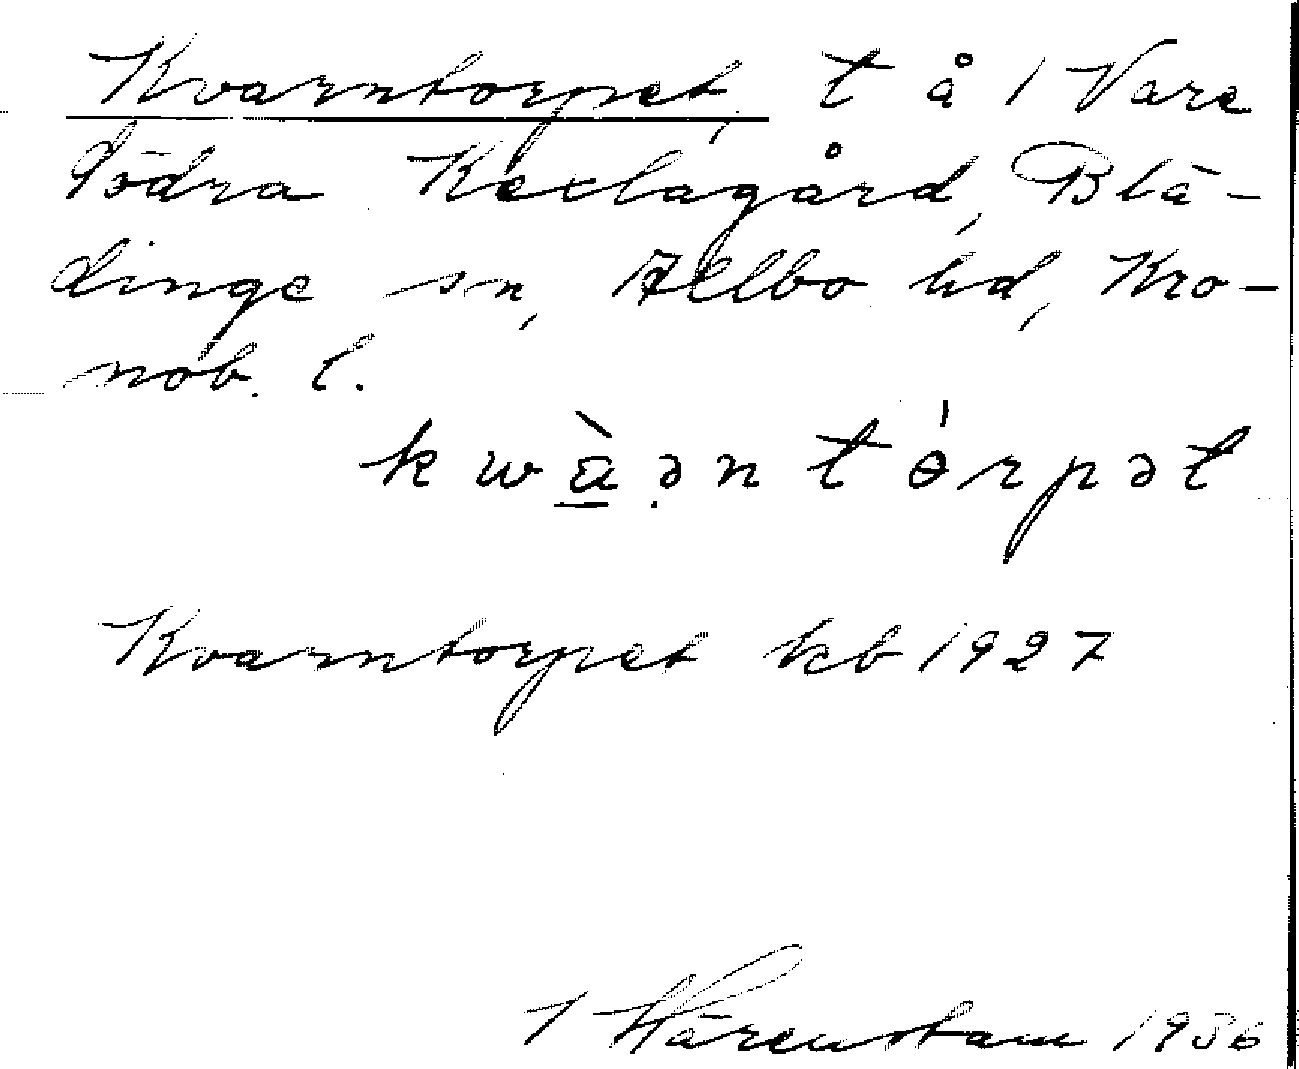 Kvarntorpet, t å 1 Vare
Södra Kexlagård, Blä-
dinge sn, Allbo hd, Kro-
nob. l.
kwàənt órpət
Kvarntorpet kb 1927
1 Härenstam 1936